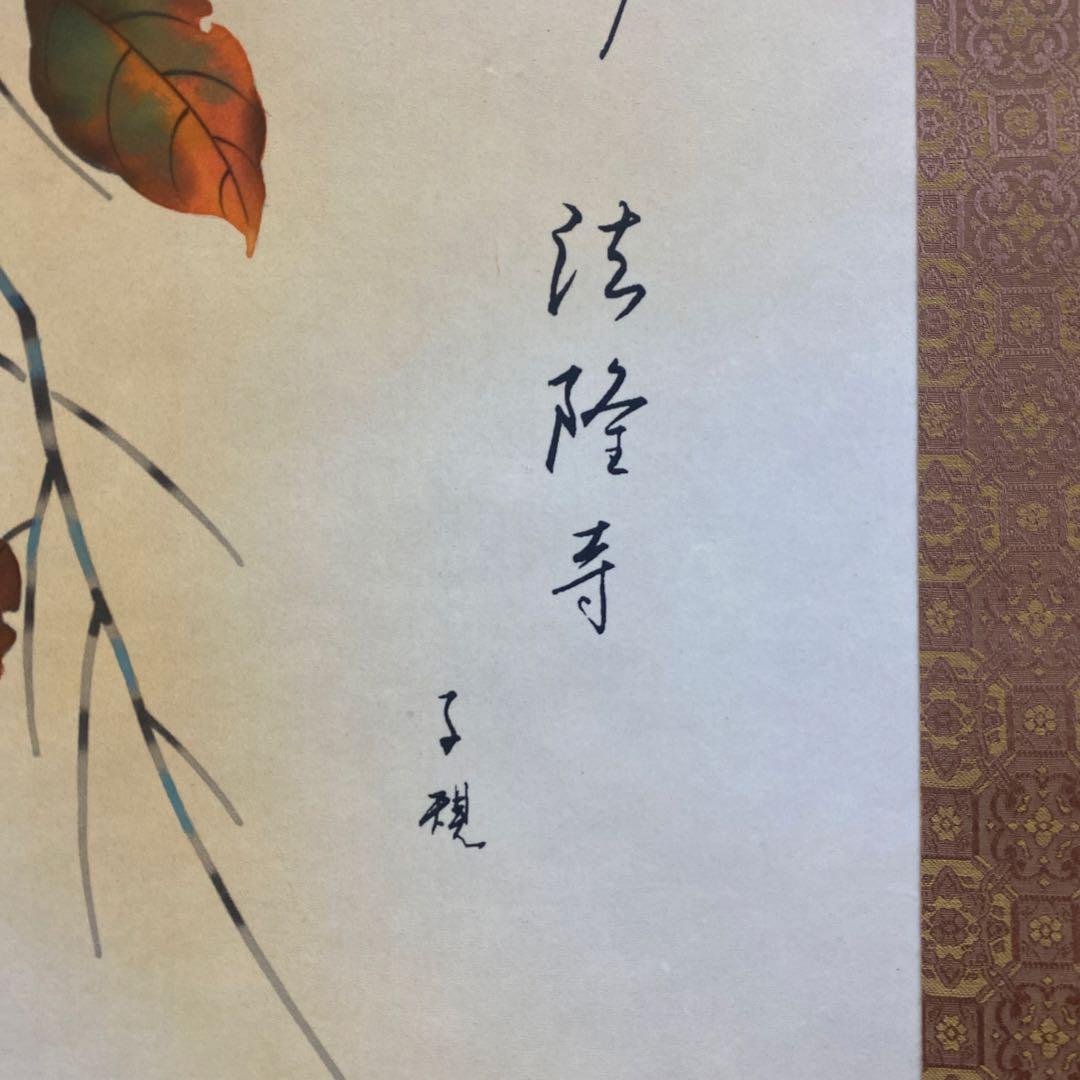 法隆寺
子規